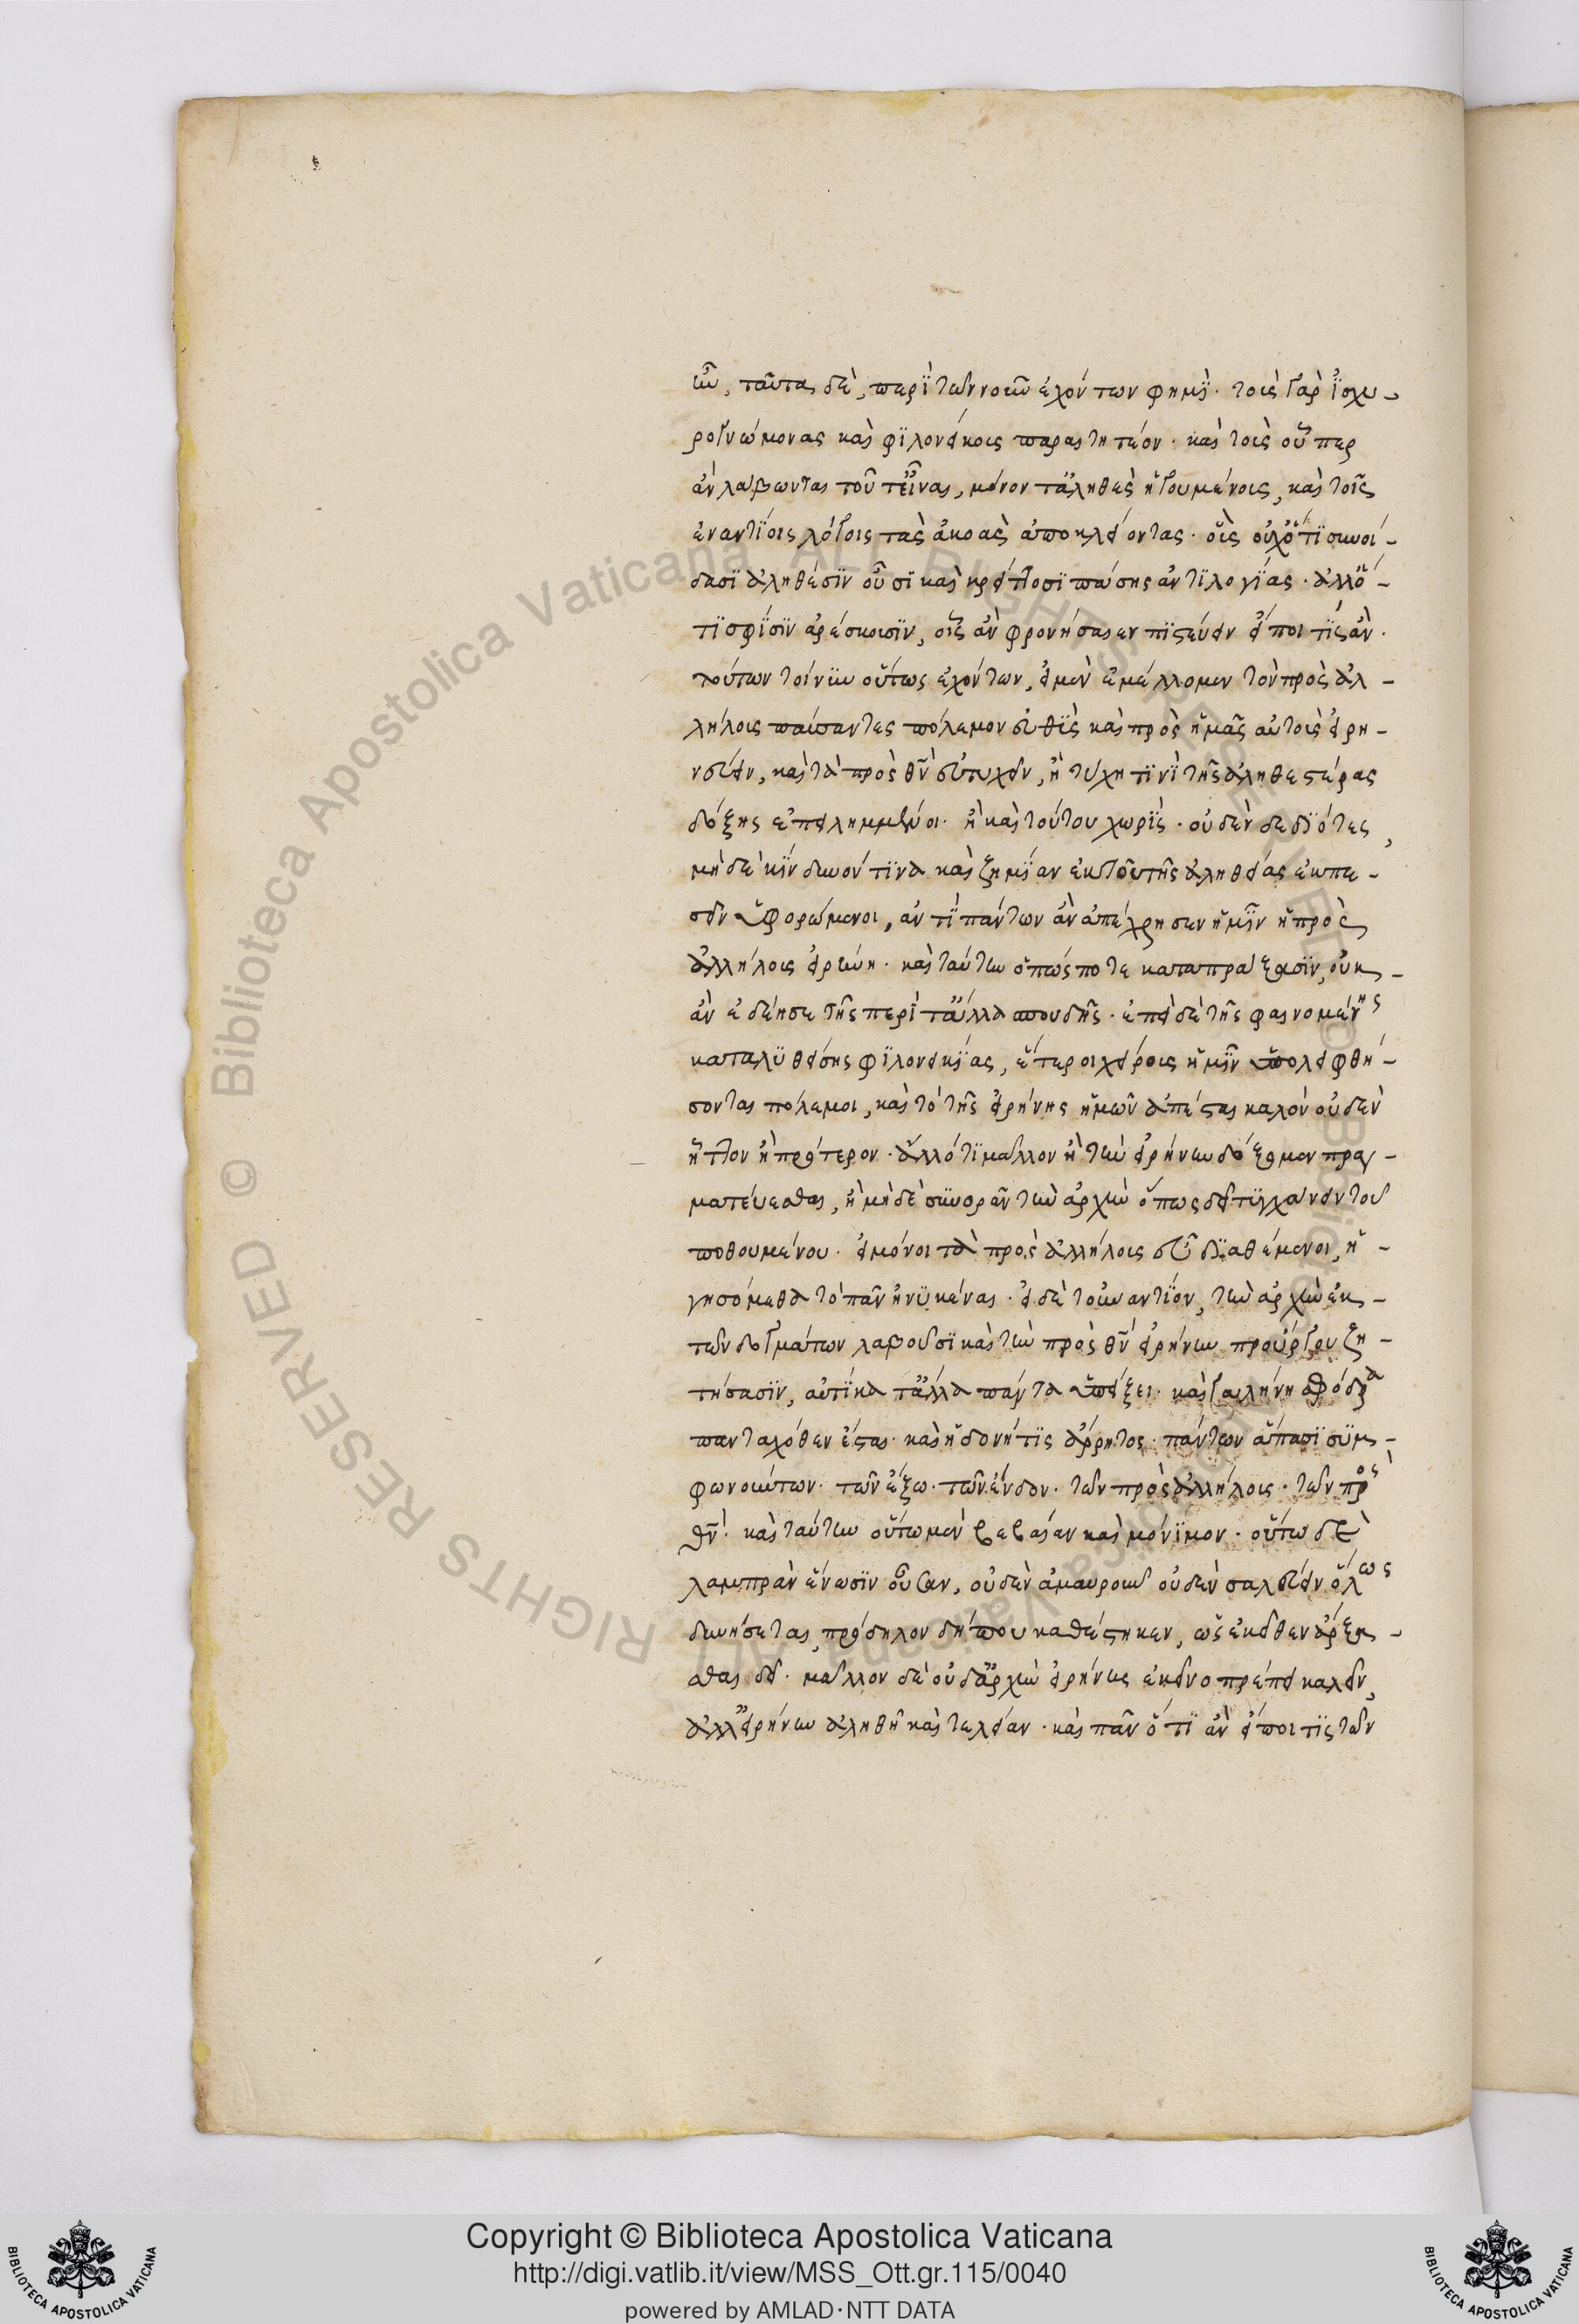 ὧ, ταῦτα δὲ, περὶ τῶν νοῦν ἐχόντων φημί· τοὺς γὰρ ἰσχυ-
ρογνώμονας καὶ φιλονείκους παραιτητέον· καὶ τοὺς οὗπερ
ἂν λάβωνται τοῦτ' εἶναι, μόνον τἀληθὲς ἡγουμένους, καὶ τοῖς
ἐναντίοις λόγοις τὰς ἀκοὰς ἀποκλείοντας· οἷς οὐχ ὅτι συνοί-
δασιν ἀληθέσιν οὖσι καὶ κρείττοσι πάσης ἀντιλογίας· ἀλλ' ὅ-
τι σφίσιν ἀρέσκουσιν, οἷς ἂν φρονήσαιεν πιστεύειν εἴποι τις ἄν·
τούτων τοίνυν οὕτως ἐχόντων, εἰ μὲν ἐμέλλομεν τὸν πρὸς ἀλ-
λήλους παύσαντες πόλεμον εὐθὺς καὶ πρὸς ἡμᾶς αὐτοὺς εἰρη-
νεύειν, καὶ τὰ πρὸς θν εὐτυχεῖν, ἢ τύχῃ τινὶ τῆς ἀληθεστέρας
δόξης ἐπειλημμένοι· ἢ καὶ τούτου χωρὶς· οὐδὲν δεδιότες,
μηδὲ κίνδυνόν τινα καὶ ζημίαν ἐκ τοῦ τῆς ἀληθείας ἐκπε-
σεῖν ὑφορώμενοι, ἀντὶ πάντων ἂν ἀπέχρησεν ἡμῖν ἡ πρὸς
ἀλλήλους εἰρήνη· καὶ ταύτην ὅπως ποτε καταπράξασιν, οὐκ
ἂν ἐδέησε τῆς περὶ τἄλλα σπουδῆς· ἐπεὶ δὲ τῆς φαινομένης
καταλυθείσης φιλονεικίας, ἕτεροι χείρους ἡμῖν ὑπολειφθή-
σονται πόλεμοι, καὶ τὸ τῆς εἰρήνης ἡμῶν ἄπεσται καλὸν οὐδὲν
ἧττον ἢ πρότερον· ἄλλό τι μᾶλλον ἢ τὴν εἰρήνην δόξομεν πραγ-
ματεύεσθαι, ἢ μηδὲ συνορᾶν τὴν ἀρχὴν ὅπως δεῖ τυγχάνειν τοῦ
ποθουμένου· εἰ μόνοι τὰ πρὸς ἀλλήλους εὖ διαθέμενοι, ἡ-
γησόμεθα τὸ πᾶν ἠνυκέναι· εἰ δὲ τοὐναντίον, τὴν ἀρχὴν ἐκ
τῶν δογμάτων λαβοῦσι καὶ τὴν πρὸς θν εἰρήνην προὔργου ζη-
τήσασιν, αὐτίκα τἄλλα πάντα ὑπείξει· καὶ γαλήνη σφόδρα
πανταχόθεν ἔσται· καὶ ἡδονή τις ἄρρητος· πάντων ἅπασι συμ-
φωνούντων· τῶν ἔξω· τῶν ἔνδον· τῶν πρὸς ἀλλήλους· τῶν πρὸς
θν· καὶ ταύτην οὕτω μὲν βεβαίαν καὶ μόνιμον· οὕτω δὲ
λαμπρὰν ἕνωσιν οὖσαν, οὐδὲν ἀμαυροῦν οὐδὲν σαλεύειν ὅλως
δυνήσεται, πρόσηλον δήπου καθέστηκεν, ὡς ἐκεῖθεν ἄρξα-
σθαι δεῖ· μᾶλλον δὲ οὐδ' ἀρχὴν εἰρήνης ἐκεῖνο πρέπει καλεῖν,
ἀλλ' εἰρήνην ἀληθῆ καὶ τελείαν· καὶ πᾶν ὅτι ἂν εἴποι τις τῶν
Copyright © Biblioteca Apostolica Vaticana
http://digi.vatlib.it/view/MSS_Ott.gr.115/0040
powered by AMLAD·NTT DATA